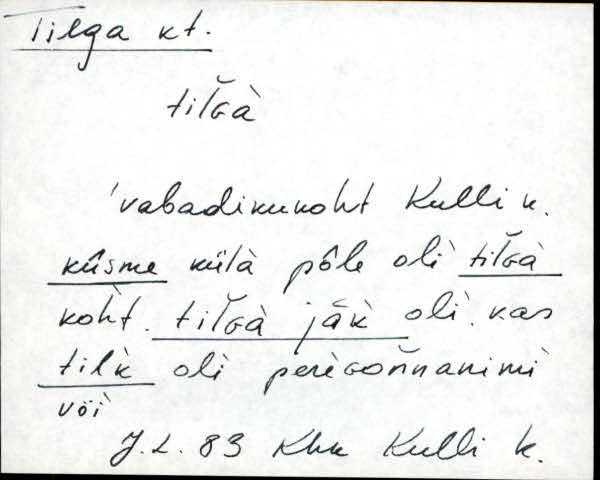 Tilga kt.
tiľɢà
'vabadikukoht Kulli k.
kûsme külà pôle olì tiľɢà
koh̀t. tiľɢà jâk̀ olì. kas
tilk̀ oli perèɢoňnanimì
vöì
J. L. 83 Khk Kulli k.